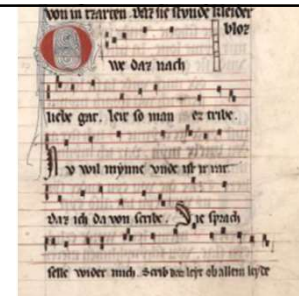 von in zzarten. daz sie stvnde kleider
bloz
O
we daz nach
liebe gar. leir so man er tribe.
N v wil mynne vnde ist ir rat.
daz ich da von scribe. Die sprach
selle wider mich. Scrib von leyt ob allem leyde